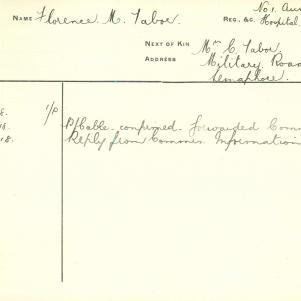 NAME Florence M. Tabor. REG. &C. No 1. Aus
Hospital
NEXT OF KIN Mrs C. Tabor.
ADDRESS Military Road
Semaphore.
8. 1/P
P/Cable confirmed. forwarded Comm
18. Reply from Commrs. Information